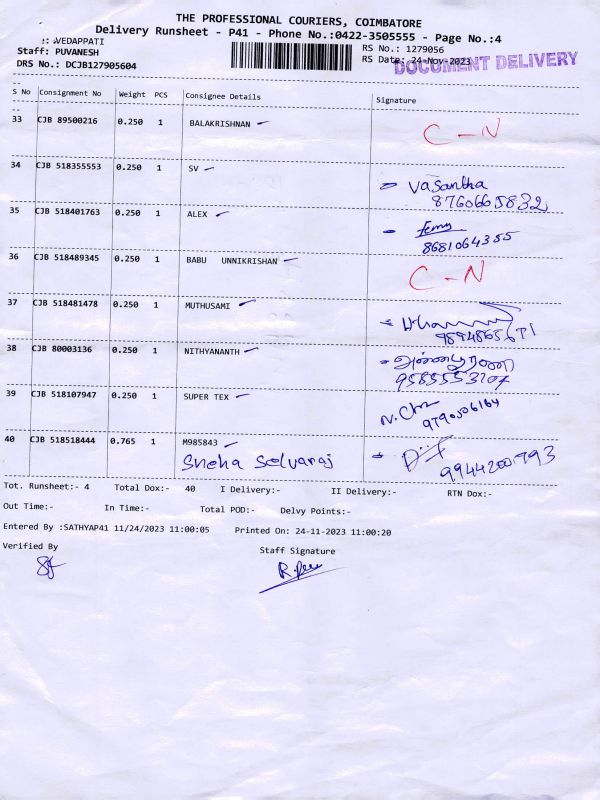 THE PROFESSIONAL COURIERS, COIMBATORE
Delivery Runsheet - P41 - Phone No.:0422-3505555 - Page No.:4
: VEDAPPATI
Staff: PUVANESH
RS No.: 1279056
DRS No.: DCJB127905604
RS Date: 24-Nov-2023
DOCUMENT DELIVERY
S No Consignment No Weight PCS Consignee Details Signature
33 CJB 89500216 0.250 1 BALAKRISHNAN C-N
34 CJB 518355553 0.250 1 SV Vasantha
8760665832
35 CJB 518401763 0.250 1 ALEX
8681064355
36 CJB 518489345 0.250 1 BABU UNNIKRISHAN C-N
37 CJB 518481478 0.250 1 MUTHUSAMI
38 CJB 80003136 0.250 1 NITHYANANTH
39 CJB 518107947 0.250 1 SUPER TEX
9790506164
40 CJB 518518444 0.765 1 M985843
Sneha Selvaraj
Tot. Runsheet:- 4 Total Dox:- 40 I Delivery:- II Delivery:- RTN Dox:-
Out Time:- In Time:- Total POD:- Delvy Points:-
Entered By :SATHYAP41 11/24/2023 11:00:05 Printed On: 24-11-2023 11:00:20
Verified By Staff Signature